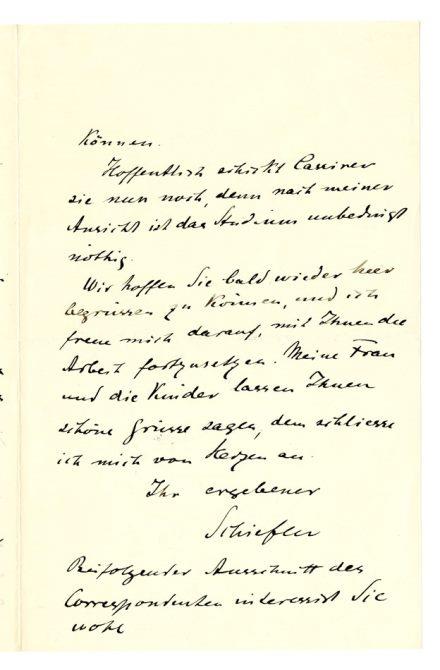 Können.
Hoffentlich schickt Cassirer
sie nun noch, denn nach meiner
Ansicht ist das Studium unbedingt
nöthig.
Wir hoffen Sie bald wieder hier
begrüssen zu können, und ich
freue mich darauf, mit Ihnen die
Arbeit fortzusetzen. Meine Frau
und die Kinder lassen Ihnen
schöne Grüsse sagen, dem schliesse
ich mich von Herzen an.
Ihr ergebener
Schiefler
Beifolgender Ausschnitt des
Correspondenten interessirt Sie
wohl